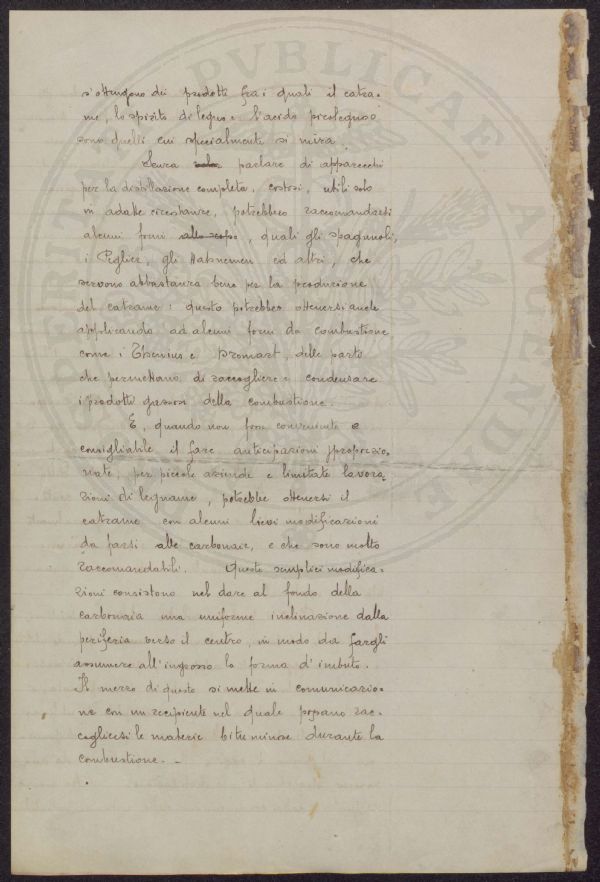 s'ottengono dei prodotti fra i quali il catra-
me, lo spirito di legno e l'acido pirolegnoso
sono quelli cui specialmente si mira.
Senza parlare di apparecchi
per la distillazione completa, costosi, utili solo
in adatte circostanze, potrebbero raccomandarsi
alcuni forni allo scopo, quali gli spagnuoli,
i Peglier, gli Hahnemen ed altri, che
servono abbastanza bene per la produzione
del catrame: questo potrebbe ottenersi anche
applicando ad alcuni forni da combustione
come i Thenius e Bromart, delle parti
che permettano di raccogliere e condensare
i prodotti gassosi della combustione.
E, quando non fosse conveniente e
consigliabile il fare anticipazioni sproporzio-
nate, per piccole aziende e limitate lavora-
zioni di legname, potrebbe ottenersi il
catrame con alcuni lievi modificazioni
da farsi alle carbonaie, e che sono molto
raccomandabili. Queste semplici modifica-
zioni consistono nel dare al fondo della
carbonaia una uniforme inclinazione dalla
periferia verso il centro, in modo da fargli
assumere all'ingrosso la forma d'imbuto.
Il mezzo di questo si mette in comunicazio-
ne con un recipiente nel quale possano rac-
cogliersi le materie bituminose durante la
combustione. -
PVBLICAE
AVGENDAE